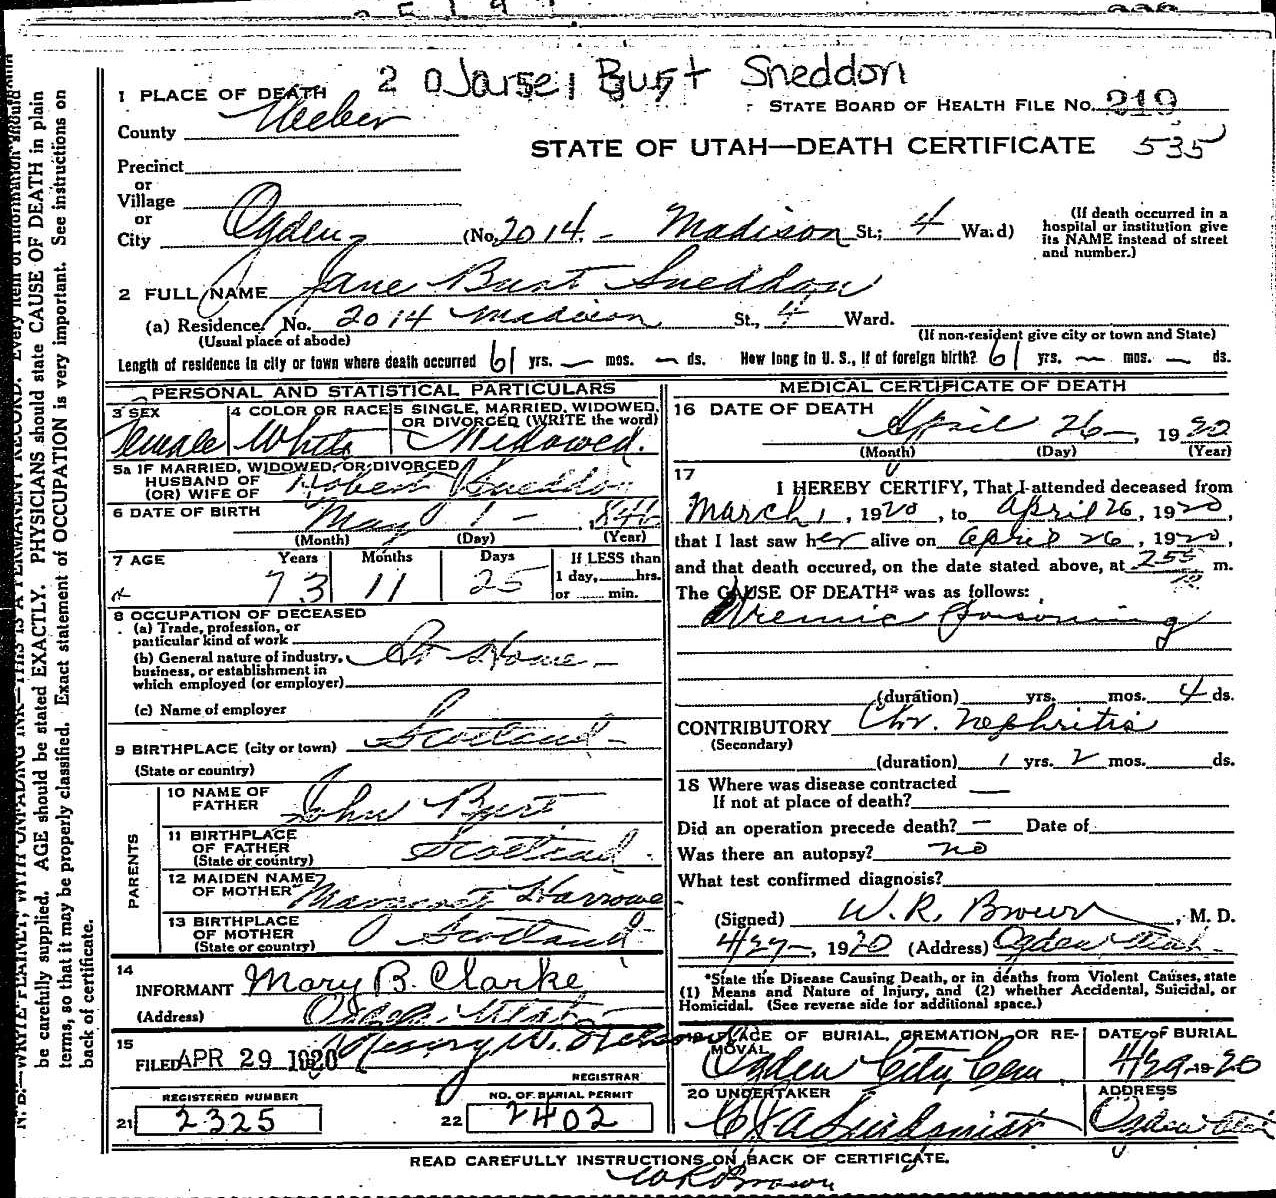 Burt Sneddon
1 PLACE OF DEATH
STATE BOARD OF HEALTH FILE NO. 219
County Weber
STATE OF UTAH—DEATH CERTIFICATE 535
Precinct
or
Village
or
City Ogden (No. 2014 - Madison St.; 4 Ward)
(If death occurred in a
hospital or institution give
its NAME instead of street
and number.)
2 FULL NAME Jane Burt Sneddon
(a) Residence, No. 2014 Madison St., 4 Ward.
(Usual place of abode)
(If non-resident give city or town and State)
Length of residence in city or town where death occurred 61 yrs. — mos. — ds. How long in U. S., if of foreign birth? 61 yrs. — mos. — ds.
PERSONAL AND STATISTICAL PARTICULARS
3 SEX
Female
4 COLOR OR RACE
White
5 SINGLE, MARRIED, WIDOWED,
OR DIVORCED (WRITE the word)
Widowed.
5a IF MARRIED, WIDOWED, OR DIVORCED
HUSBAND OF
(OR) WIFE OF Robert Sneddon
6 DATE OF BIRTH May 1 - 1846
(Month) (Day) (Year)
7 AGE Years Months Days If LESS than
73 11 25 1 day, hrs.
or min.
8 OCCUPATION OF DECEASED
(a) Trade, profession, or
particular kind of work
(b) General nature of industry,
business, or establishment in
which employed (or employer) At Home -
(c) Name of employer
9 BIRTHPLACE (city or town) Scotland -
(State or country)
PARENTS
10 NAME OF
FATHER John Burt
11 BIRTHPLACE
OF FATHER
(State or country) Scotland.
12 MAIDEN NAME
OF MOTHER Margaret Harrower
13 BIRTHPLACE
OF MOTHER
(State or country) Scotland
14
INFORMANT Mary B. Clarke
(Address) Ogden Utah
15
FILED APR 29 1920
REGISTRAR
REGISTERED NUMBER
21 2325
NO. OF BURIAL PERMIT
22 2402
MEDICAL CERTIFICATE OF DEATH
16 DATE OF DEATH
April 26 -, 1920
(Month) (Day) (Year)
17
I HEREBY CERTIFY, That I attended deceased from
March 1, 1920, to April 26, 1920,
that I last saw her alive on April 26, 1920,
and that death occured, on the date stated above, at 255 m.
The CAUSE OF DEATH* was as follows:
Uremic Poisoning
(duration) yrs. mos. 4 ds.
CONTRIBUTORY Chr. Nephritis
(Secondary)
(duration) 1 yrs. 2 mos. ds.
18 Where was disease contracted —
If not at place of death?
Did an operation precede death? — Date of
Was there an autopsy? no
What test confirmed diagnosis?
(Signed) W. R. Brown, M. D.
4/27-, 1920 (Address) Ogden Utah
*State the Disease Causing Death, or in deaths from Violent Causes, state
(1) Means and Nature of Injury, and (2) whether Accidental, Suicidal, or
Homicidal. (See reverse side for additional space.)
PLACE OF BURIAL, CREMATION, OR RE-
MOVAL
Ogden City Cem
DATE OF BURIAL
4/29-1920
20 UNDERTAKER
ADDRESS
Ogden Utah
READ CAREFULLY INSTRUCTIONS ON BACK OF CERTIFICATE.
N. B.—WRITE PLAINLY, WITH UNFADING INK—THIS IS A PERMANENT RECORD. Every item of information should
be carefully supplied. AGE should be stated EXACTLY. PHYSICIANS should state CAUSE OF DEATH in plain
terms, so that it may be properly classified. Exact statement of OCCUPATION is very important. See instructions on
back of certificate.